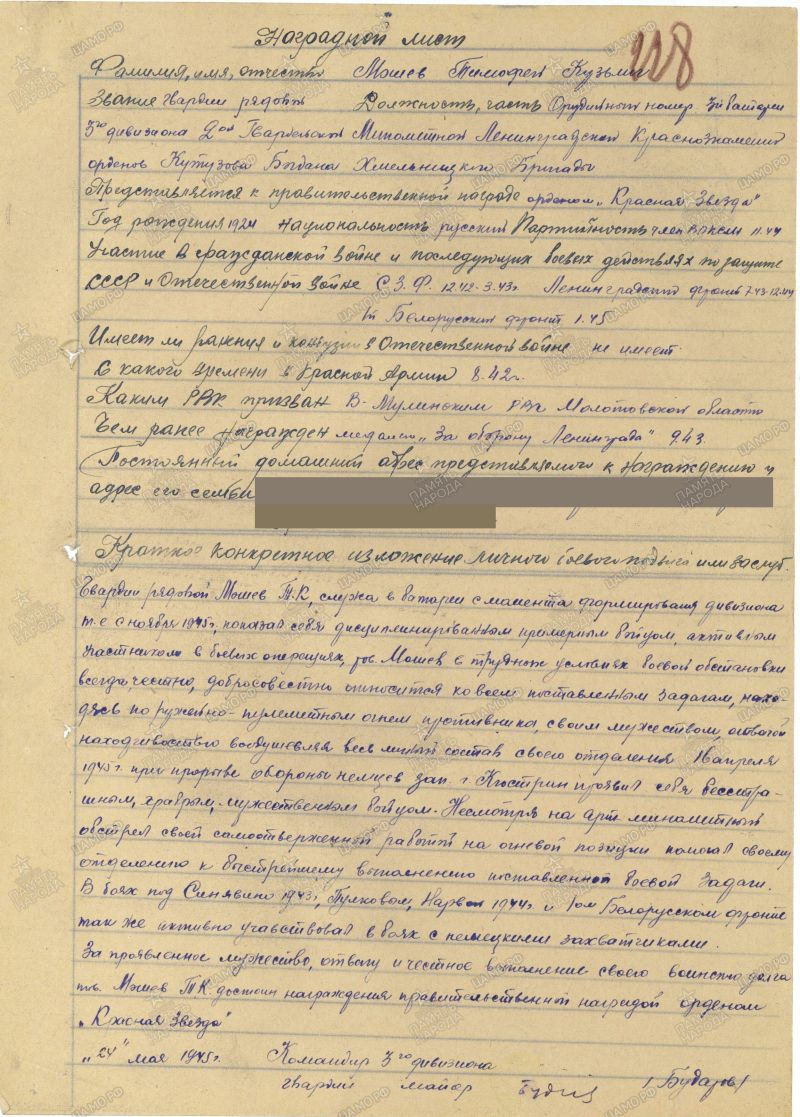 118
Наградной лист
Фамилия, имя, отчество Мошев Тимофей Кузьми
Звание гвардии рядовой Должность, часть Орудийный номер 3й батареи
3го дивизиона 2ой Гвардейской Минометной Ленинградской Краснознаменной
орденов Кутузова Богдана Хмельницкого Бригады
Представляется к правительственной награде орденом „Красная Звезда"
Год рождения 1924 национальность русский Партийность член ВЛКСМ 11.44
Участие в гражданской войне и последующих боевых действиях по защите
СССР и Отечественной войне С.З.Ф. 12.42-3.43г. Ленинградский фронт 7.43-12.44
1й Белорусский фронт 1.45
Имеет ли ранения и контузии в Отечественной войне не имеет.
С какого времени в Красной Армии 8.42г.
Каким РВК призван В-Муллинским РВК Молотовской области
Чем ранее награжден медалью „За оборону Ленинграда" 9.43.
Постоянный домашний адрес представляемого к награждению и
адрес его семьи
Краткое конкретное изложение личного боевого подвига или заслуг.
Гвардии рядовой Мошев Т.К, служа в батареи с момента формирования дивизиона
т.е с ноября 1945г, показал себя дисциплинированным примерным бойцом, активным
участником в боевых операциях, тов. Мошев в трудных условиях боевой обстановки
всегда, честно, добросовестно относится ко всем поставленным задачам, нахо-
дясь по ружейно-пулеметным огнем противника, своим мужеством, отвагой
находчивостью воодушевляя весь личный состав своего отделения 16 апреля
1945г. при прорыве обороны немцев зап. г. Кюстрин проявил себя бесстра-
шным, храбрым, мужественным бойцом. Несмотря на арт. минаметный
обстрел своей самоотверженной работой на огневой позиции помогал своему
отделению к быстрейшему выполнению поставленной боевой задачи.
В боях под Синявино 1943г, Пулковом, Нарвой 1944г. и 1ом Белорусском фронте
так же активно учавствовал в боях с немецкими захватчиками.
За проявленное мужество, отвагу и честное выполнение своего воинского долга
тов. Мошев Т.К. достоин награждения правительственной наградой орденом
„Красная Звезда"
„24" мая 1945г. Командир 3го дивизиона
гвардии майор /Бударов/
ПАМЯТЬ НАРОДА
ЦАМО.РФ